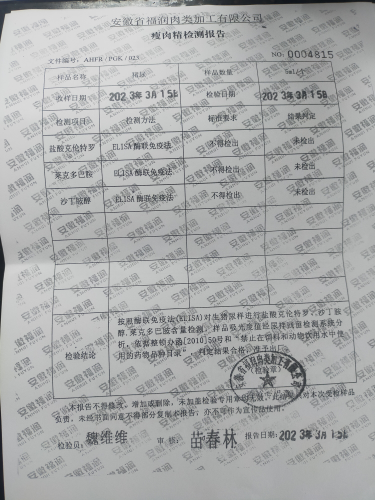 安徽省福润肉类加工有限公司
瘦肉精检测报告
文件编号：AHFR/PGK/023 NO:0004815
样品名称 猪尿 样品数量 5ml/个
收样日期 2023年3月15日 检验日期 2023年3月15日
检测项目 检测方法 标准要求 结果判定
盐酸克伦特罗 ELISA酶联免疫法 不得检出 未检出
莱克多巴胺 ELISA酶联免疫法 不得检出 未检出
沙丁胺醇 ELISA酶联免疫法 不得检出 未检出
检验结论
按照酶联免疫法(ELISA)对生猪尿样进行盐酸克伦特罗、沙丁胺
醇、莱克多巴胺含量检测，样品吸光度值经尿样残留检测系统分
析，依据整顿办函[2010]50号和“禁止在饲料和动物饮用水中使
用的药物品种目录”，判定结果合格，准予出厂。
（检验章）
本报告不得修改、增加或删除，未加盖检验专用章的无效，此结果只对本次受检样品
负责，未经书面同意不得部分复制本报告；亦不可作为宣传法使用。
检验员：魏维维 审核：苗春林 报告日期：2023年3月15日